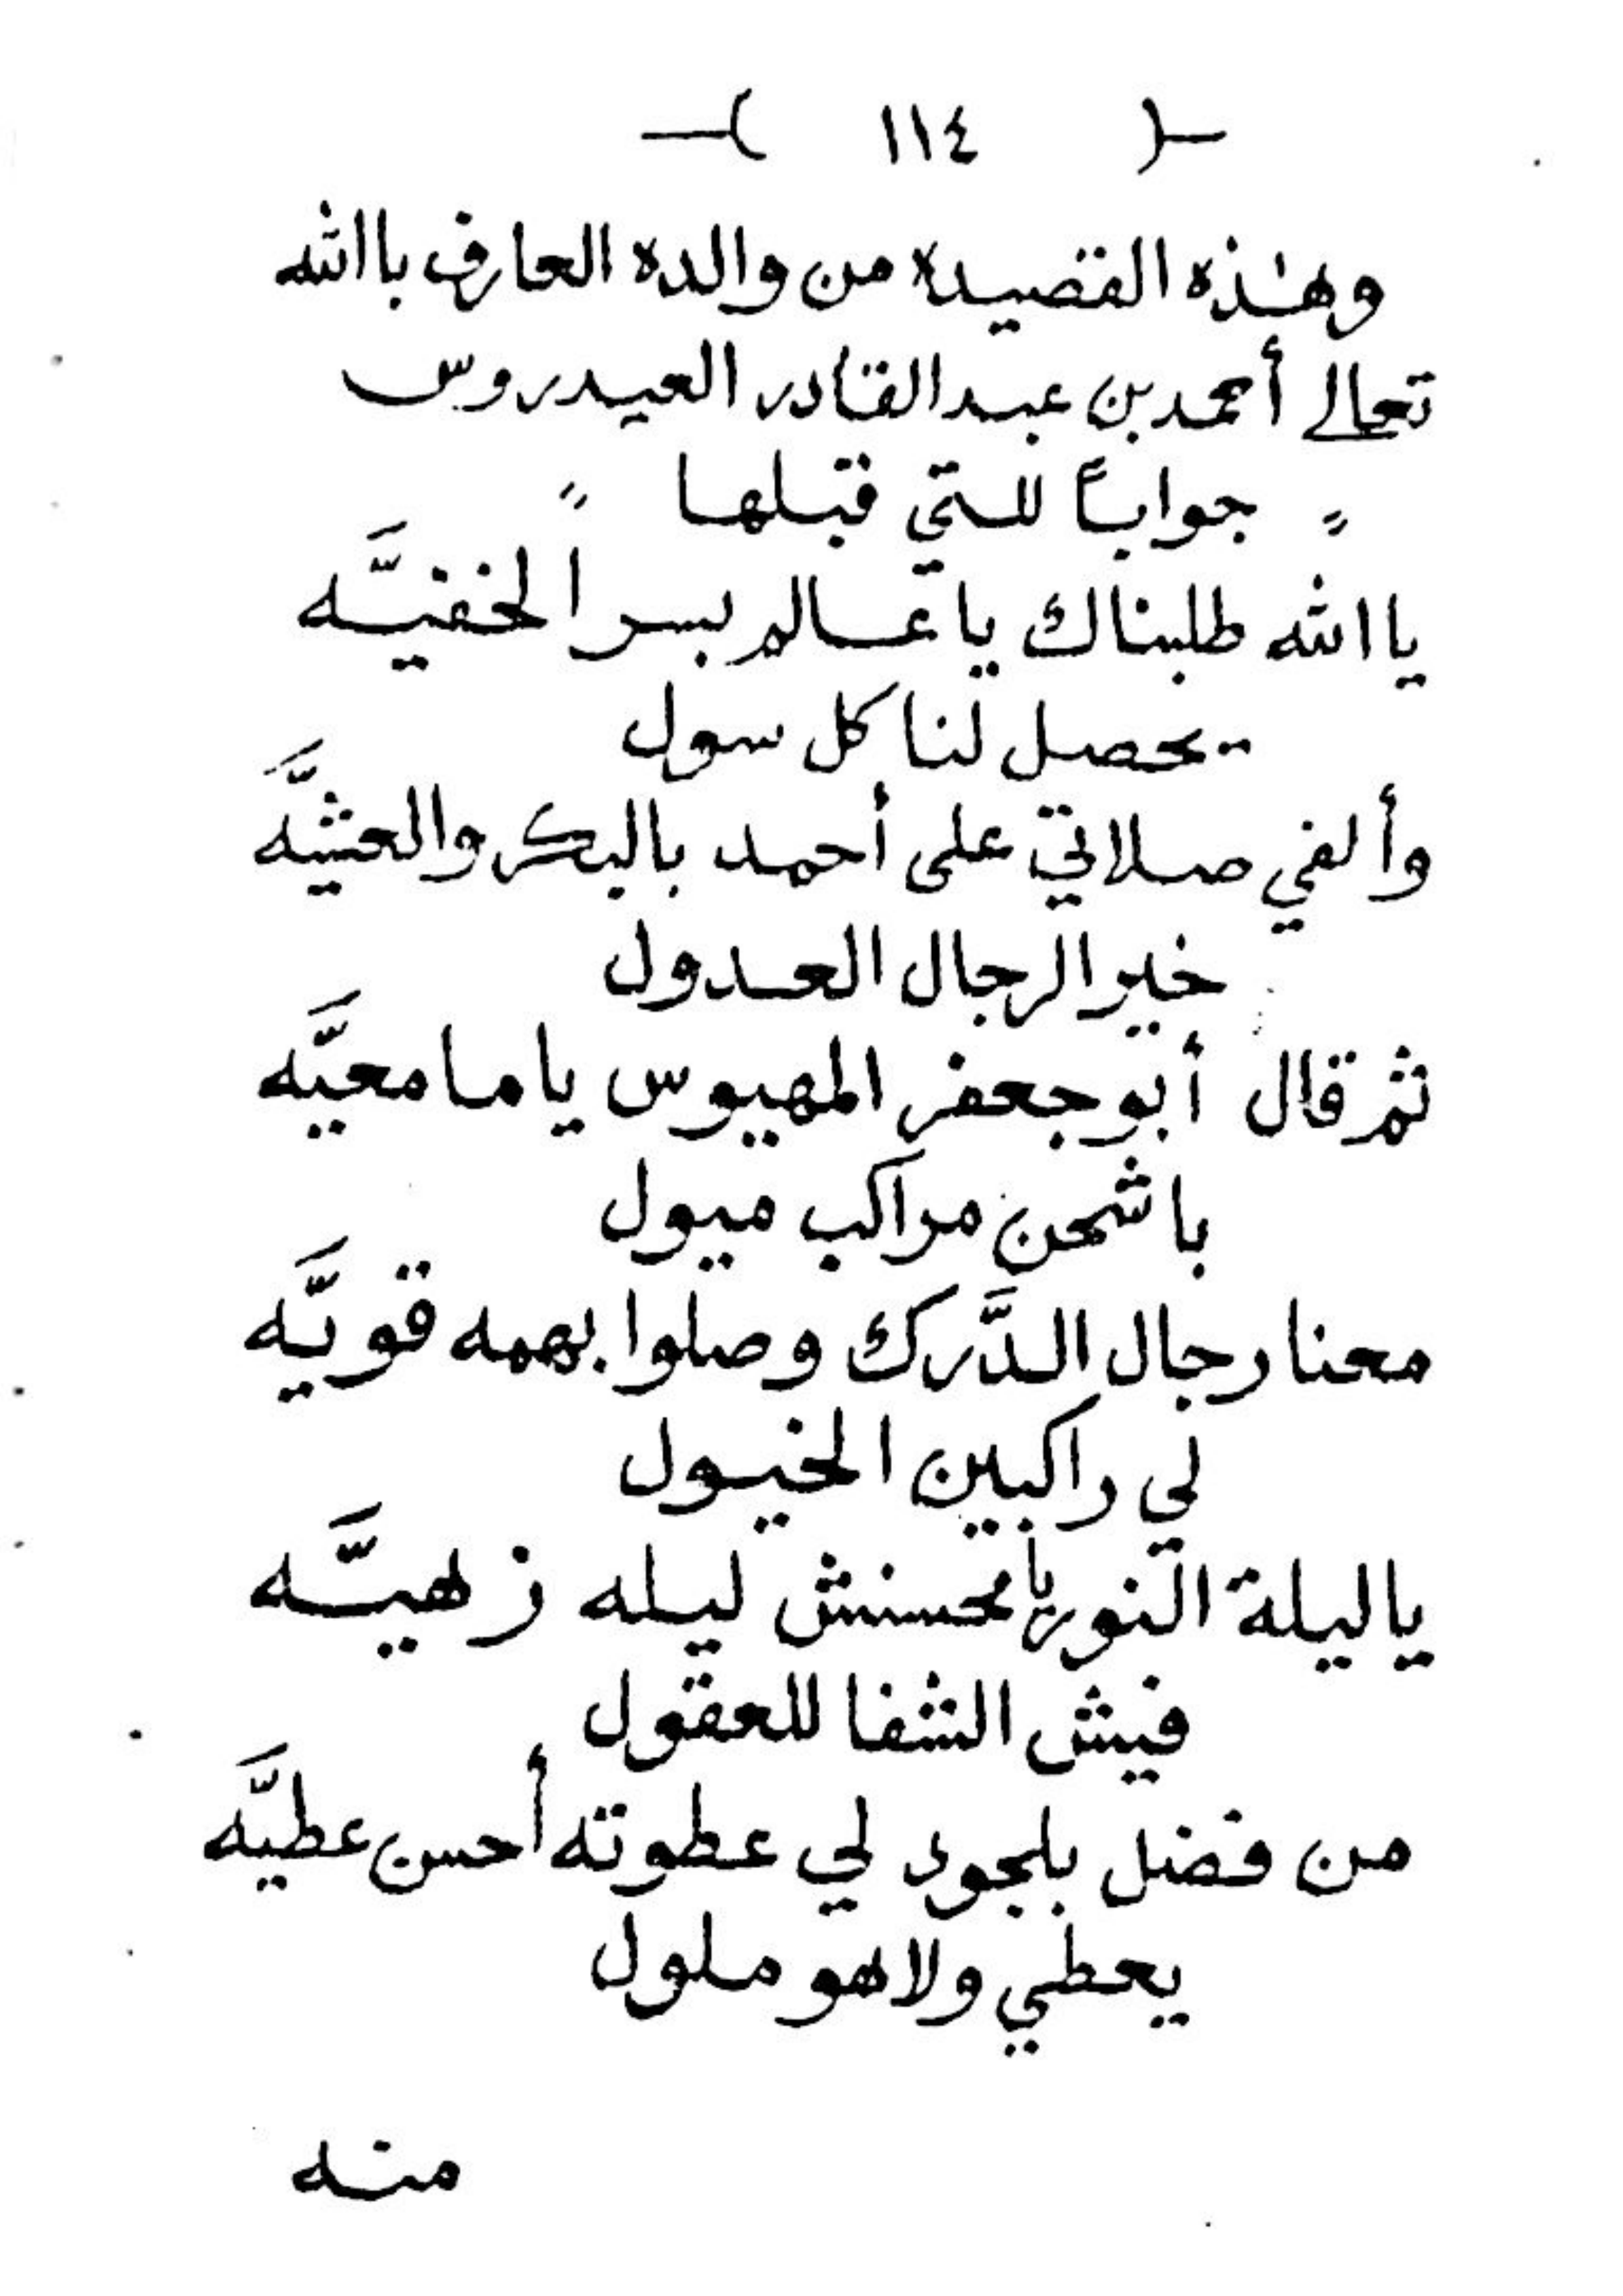 -( ١١٤ )-
وهٰذه القصيدة من والده العارف باالله
تعالى أحمد بن عبدالقادر العيدروس
" جواباً للتي قبلها "
يا الله طلبناك يا عالم بسر الخفيَّه
يحصل لنا كل سول
وألفي صلاتي على أحمد بالبكر والعشيَّه
خير الرجال العدول
ثم قال أبو جعفر المهيوس ياما معيَّه
با شحن مراكب ميول
معنا رجال الدَّرك وصلوا بهمه قويَّه
لي راكبين الخيول
يا ليلة النور يا محسنش ليله زهيَّه
فيش الشفا للعقول
من فضل بلجود لي عطوته أحسن عطيَّه
يعطي ولا هو ملول
منه